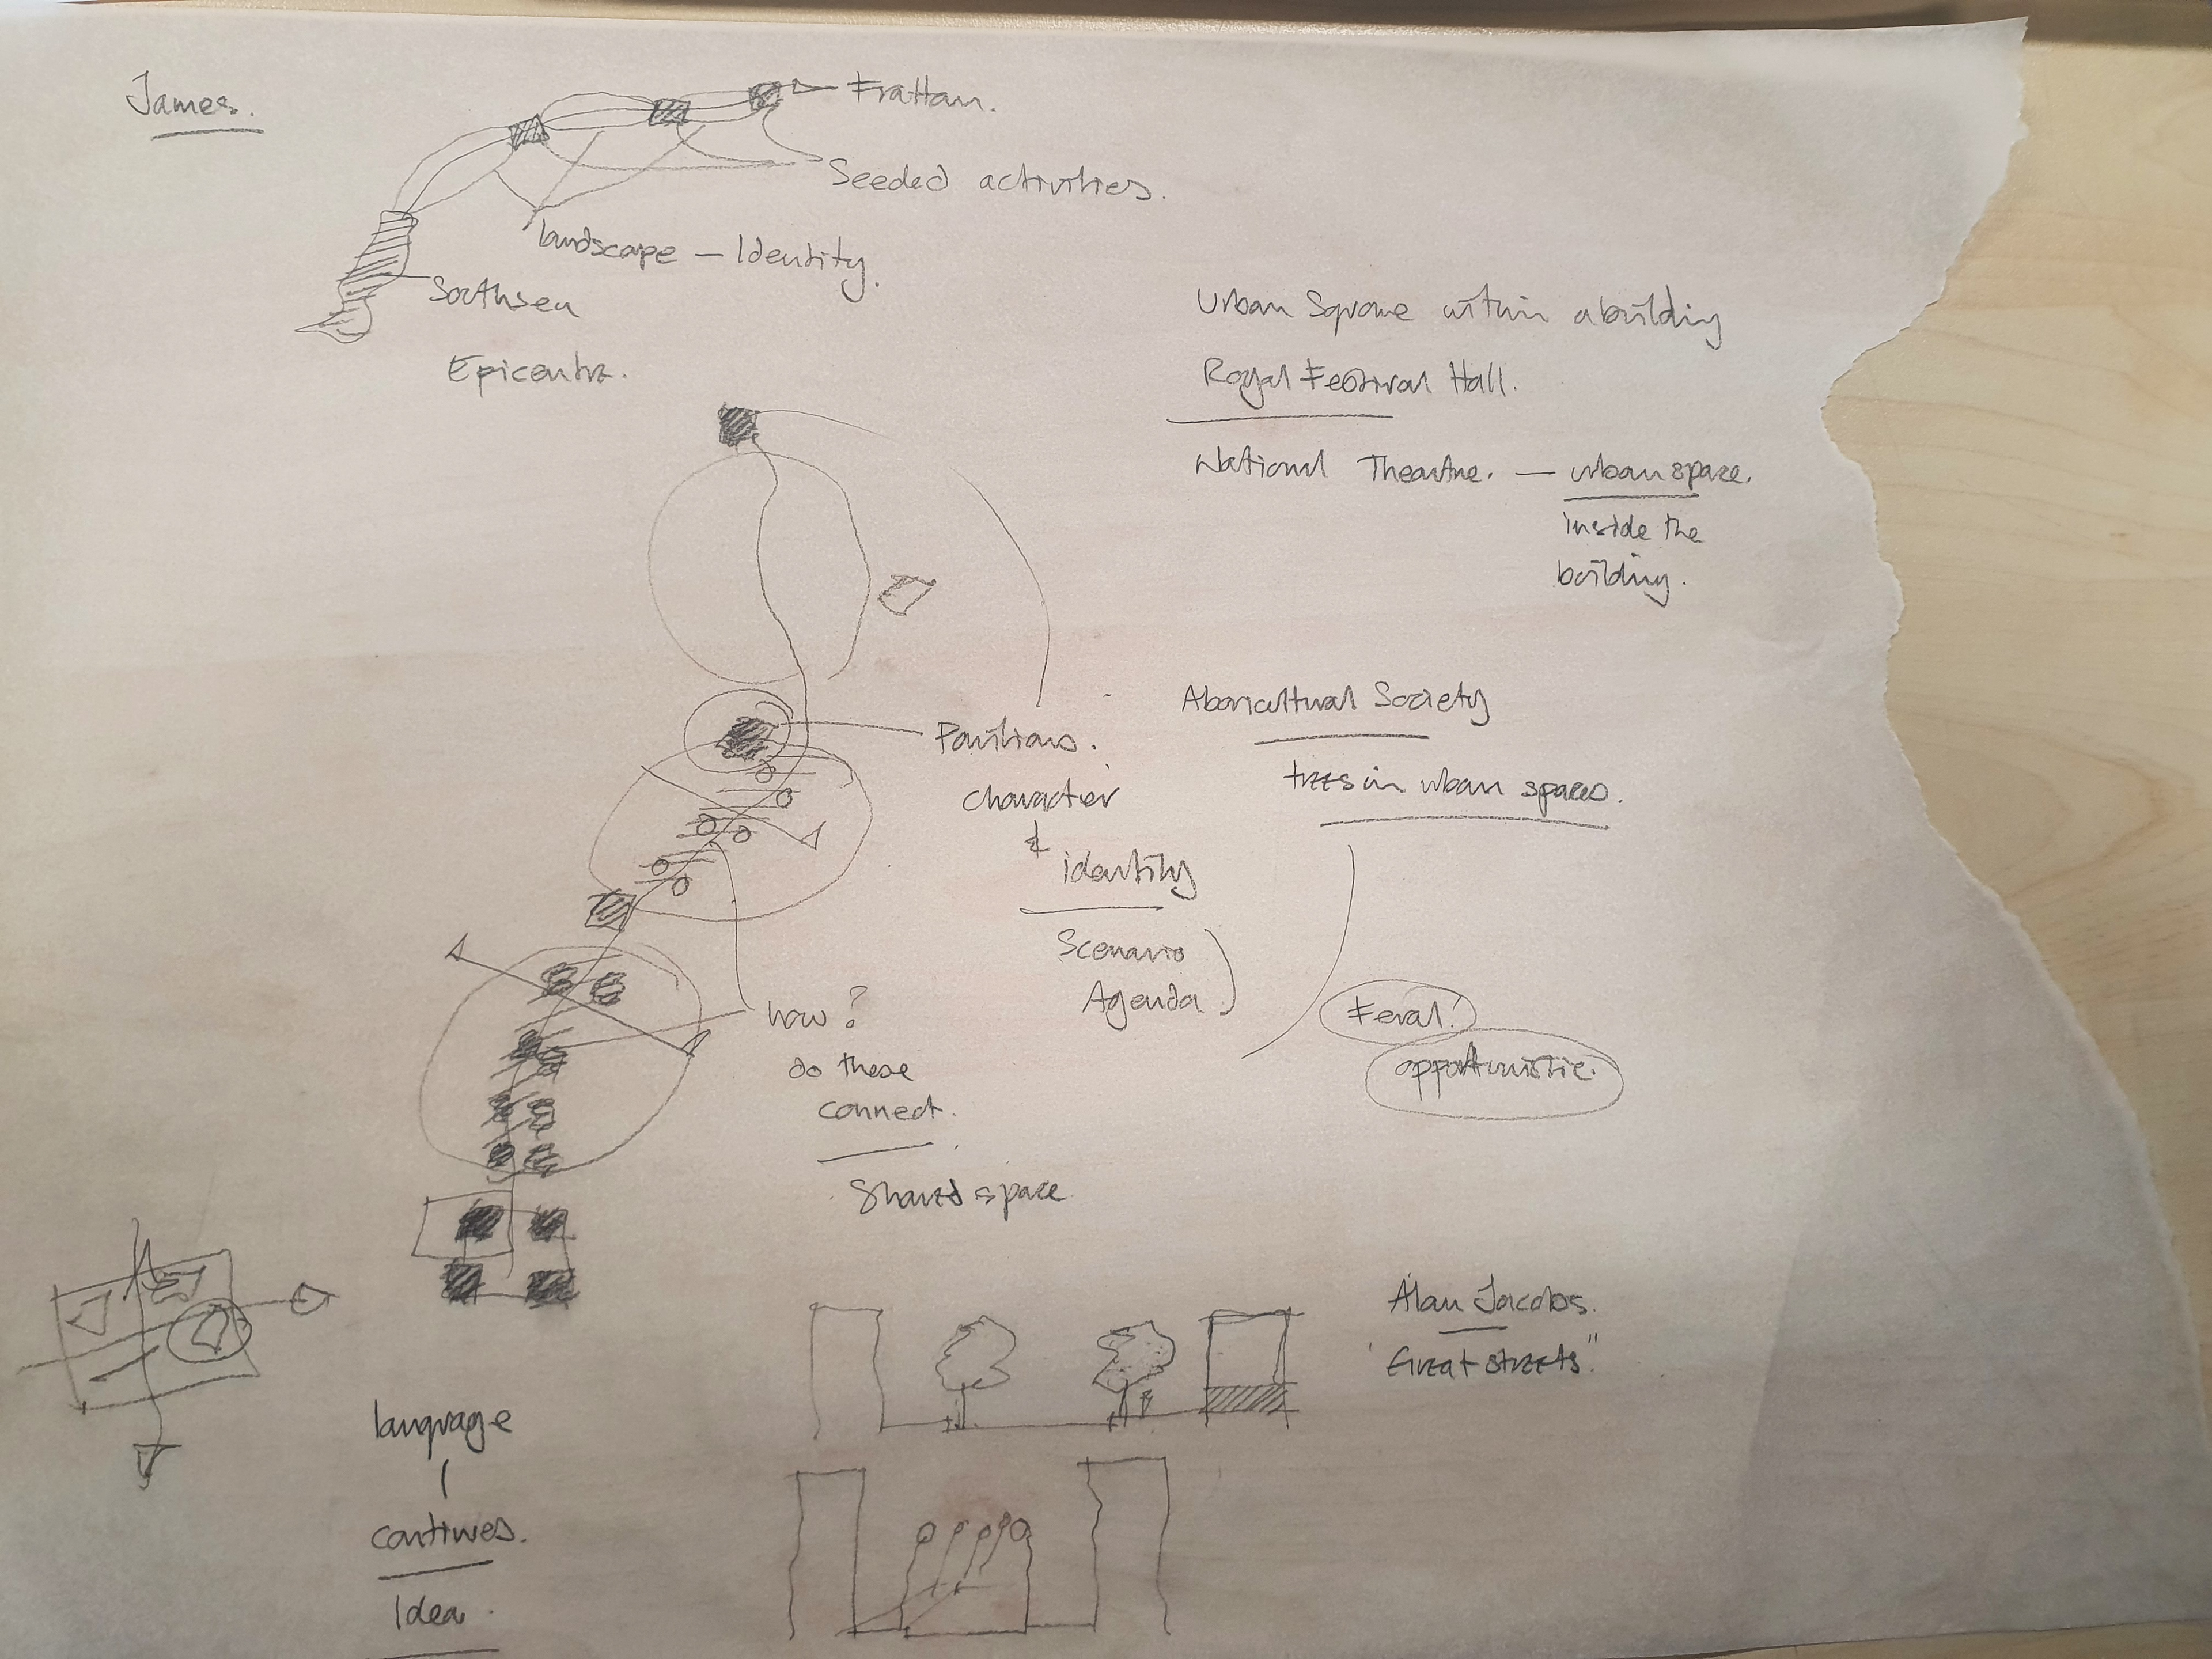 James.
Fratton.
Seeded activities.
landscape – Identity.
Southsea
Epicentre.
Urban Square within a building
Royal Festival Hall.
National Theatre. — urban space.
inside the
building.
Pavilions.
character
&
identity
Scenario
Agenda
Aboricultural Society
trees in urban spaces.
Feral!
opportunistic.
how?
do these
connect.
Shared space
Alan Jacobs.
'Great streets"
language
continues.
Idea.